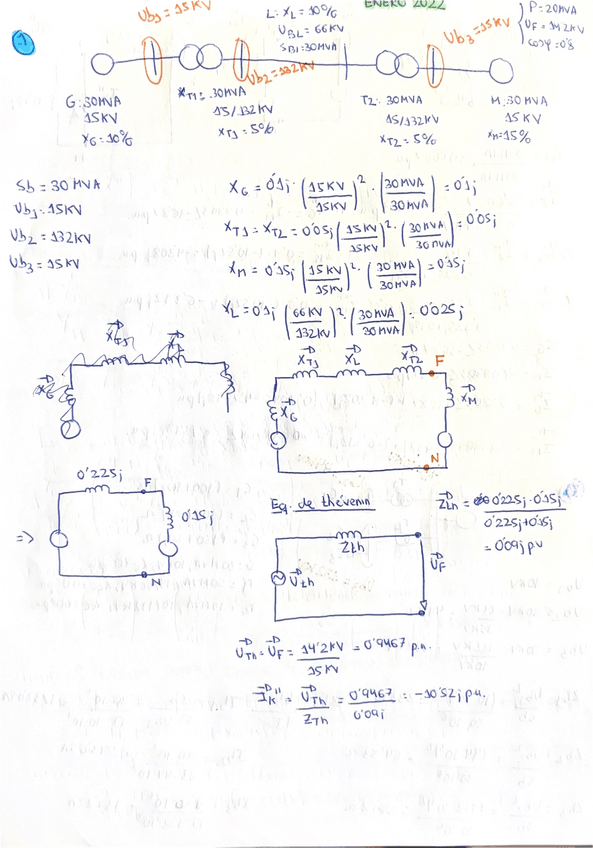 ENERO 2022
1
Ub1 = 15 KV
L: XL = 10%
UBL = 66 KV
SBL: 30 MVA
Ub2 = 132 KV
Ub3 = 15 KV
P = 20 MVA
UF = 14'2 KV
cosφ = 0'8
G: 30 MVA
15 KV
XG = 10%
XT1 = 30 MVA
15/132 KV
XT1 = 5%
T2: 30 MVA
15/132 KV
XT2 = 5%
M: 30 MVA
15 KV
Xm = 15%
Sb = 30 MVA
Ub1 = 15 KV
Ub2 = 132 KV
Ub3 = 15 KV
XG = 0'1j · (15 KV / 15 KV)² · (30 MVA / 30 MVA) = 0'1j
XT1 = XT2 = 0'05j (15 KV / 15 KV)² · (30 MVA / 30 MVA) = 0'05j
XM = 0'15j (15 KV / 15 KV)² · (30 MVA / 30 MVA) = 0'15j
XL = 0'1j (66 KV / 132 KV)² · (30 MVA / 30 MVA) = 0'025j
XT1
XL
XG
XT1 XL XT2 F
XG
XM
N
0'225j F
0'15j
=>
N
Eq. de thévenin
Zth
Uth
UF
Zth = 0'225j · 0'15j / 0'225j + 0'15j
= 0'09j p.u
UTh = UF = 14'2 KV / 15 KV = 0'9467 p.u.
Ik'' = UTh / ZTh = 0'9467 / 0'09j = -10'52j p.u.